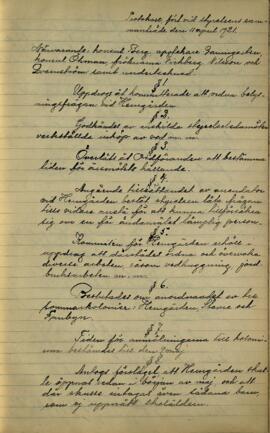 Protokoll, fört vid styrelsens sam-
manträde den 11 april 1921.
Närvarande: konsul Berg, apotekare Damgaston,
konsul Öhman, fröknarna Kichberg, Nilsson och
Svenström samt undertecknad.
§ 1.
Uppdrogs åt kommitterade att ordna belys-
ningsfrågan vid Hemgården.
§ 2.
Godkändes av enskilda styrelseledamöter
verkställda inköp av ved m. m.
§ 3.
Överläts åt ordföranden att bestämma
tiden för årsmötets hållande.
§ 4.
Angående tillsättandet av arrendator
vid Hemgården beslöt styrelsen låta frågan
tills vidare anstå för att kunna tillförsäkra
sig om en för ändamålet lämplig person.
§ 5.
Kommittén för Hemgården erhöll
uppdrag att därstädes ordna och övervaka
diverse arbeten, såsom vedhuggning, jord-
bruksarbeten m. m.
§ 6.
Beslutades om anordnandet av tre
sommarkolonier: Hemgården, Skane och
Frambyn.
§ 7.
Tiden för anmälningarna till koloni-
erna bestämdes till den 2 maj.
§ 8.
Antogs förslaget att Hemgården skul-
le öppnas redan i början av maj och att
där skulle intagas även sådana barn,
som ej uppnått skolåldern.